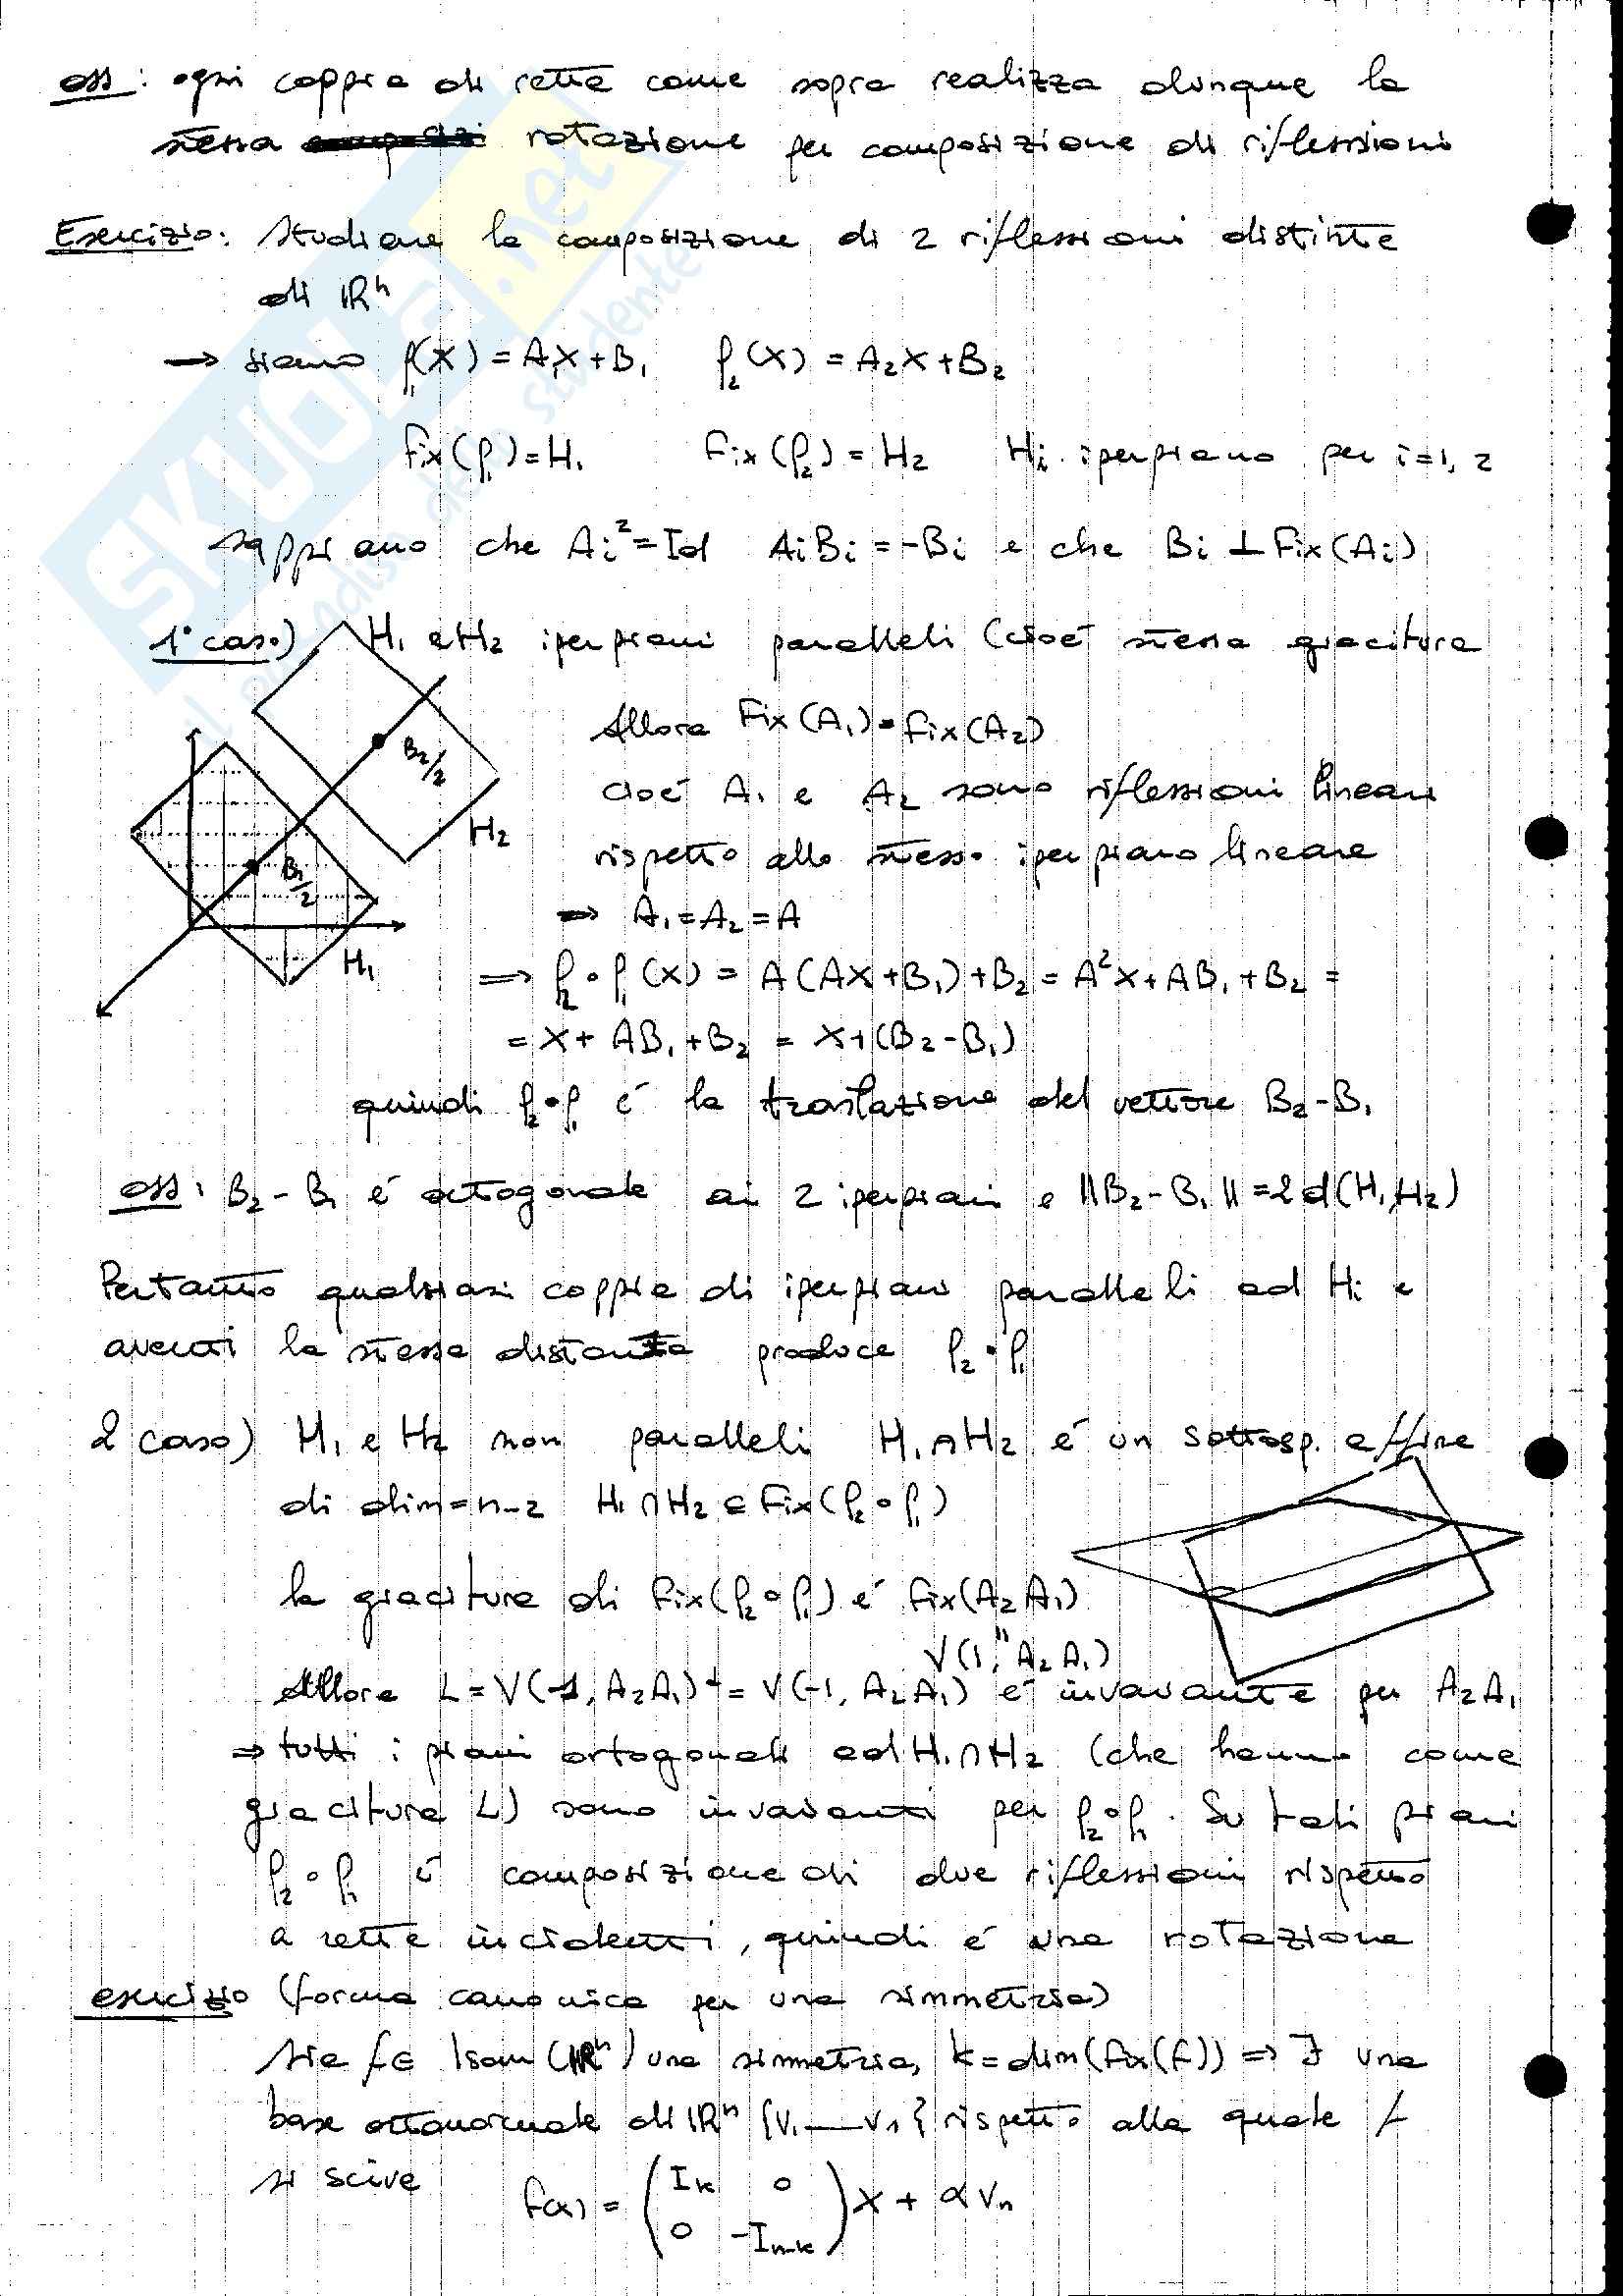 oss: ogni coppia di rette come sopra realizza dunque la
stessa rotazione per composizione di riflessioni
Esercizio: Studiare la composizione di 2 riflessioni distinte
di ℝⁿ
→ siano ρ₁(X) = A₁X + B₁ ρ₂(X) = A₂X + B₂
Fix(ρ₁) = H₁ Fix(ρ₂) = H₂ Hi iperpiano per i=1,2
sappiamo che Ai² = Id AiBi = -Bi e che Bi ⊥ Fix(Ai)
1° caso) H₁ e H₂ iperpiani paralleli (cioé stessa giacitura
Allora Fix(A₁) = Fix(A₂)
cioé A₁ e A₂ sono riflessioni lineari
rispetto allo stesso iperpiano lineare
⇒ A₁ = A₂ = A
B₂/2
H₂
B₁/2
H₁
⇒ ρ₂∘ρ₁(X) = A(AX + B₁) + B₂ = A²X + AB₁ + B₂ =
= X + AB₁ + B₂ = X + (B₂ - B₁)
quindi ρ₂∘ρ₁ é la traslazione del vettore B₂ - B₁
oss: B₂ - B₁ é ortogonale ai 2 iperpiani e ||B₂ - B₁|| = 2d(H₁,H₂)
Pertanto qualsiasi coppia di iperpiani paralleli ad Hi e
aventi la stessa distanza produce ρ₂∘ρ₁
2 caso) H₁ e H₂ non paralleli H₁∩H₂ é un sottosp. affine
di dim = n-2 H₁∩H₂ ⊆ Fix(ρ₂∘ρ₁)
la giacitura di Fix(ρ₂∘ρ₁) é Fix(A₂A₁)
"
V(1, A₂A₁)
Allora L = V(-1, A₂A₁)⊥ = V(-1, A₂A₁) é invariante per A₂A₁
⇒ tutti i piani ortogonali ad H₁∩H₂ (che hanno come
giacitura L) sono invarianti per ρ₂∘ρ₁. Su tali piani
ρ₂∘ρ₁ é composizione di due riflessioni rispetto
a rette incidenti, quindi é una rotazione
esercizio (forma canonica per una simmetria)
Sia f ∈ Isom(ℝⁿ) una simmetria, k = dim(Fix(f)) ⇒ ∃ una
base ortonormale di ℝⁿ {v₁ — vₙ} rispetto alla quale f
si scive
f(x) = ( Iₖ 0
0 -Iₙ₋ₖ ) X + αvₙ
SKUOLA.net
il paradiso dello studente